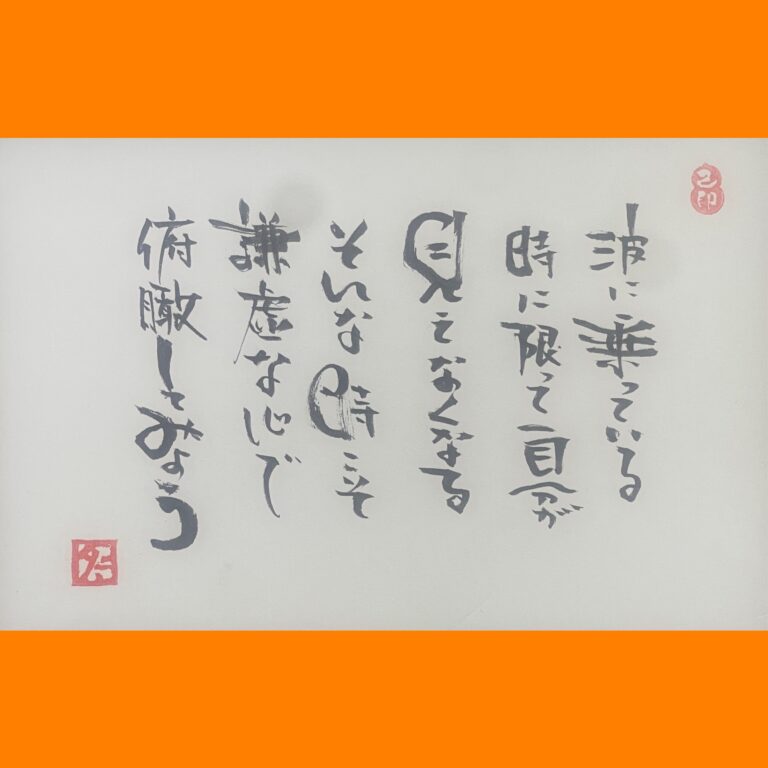 波に乗っている
時に限って自分が
見えなくなる
そんな時こそ
謙虚な心で
俯瞰してみよう